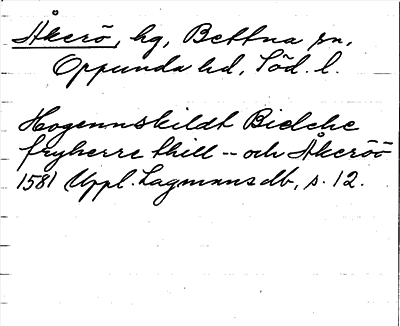 Åkerö, hg, Bettna sn,
Oppunda hd, Söd. l.
Hogennskildt Bielche
fryherre thill -- och Åkeröö
1581 Uppl. Lagmansdb, s. 12.